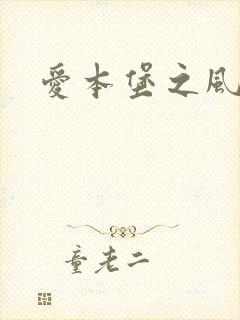 愛本堡之風
童老二